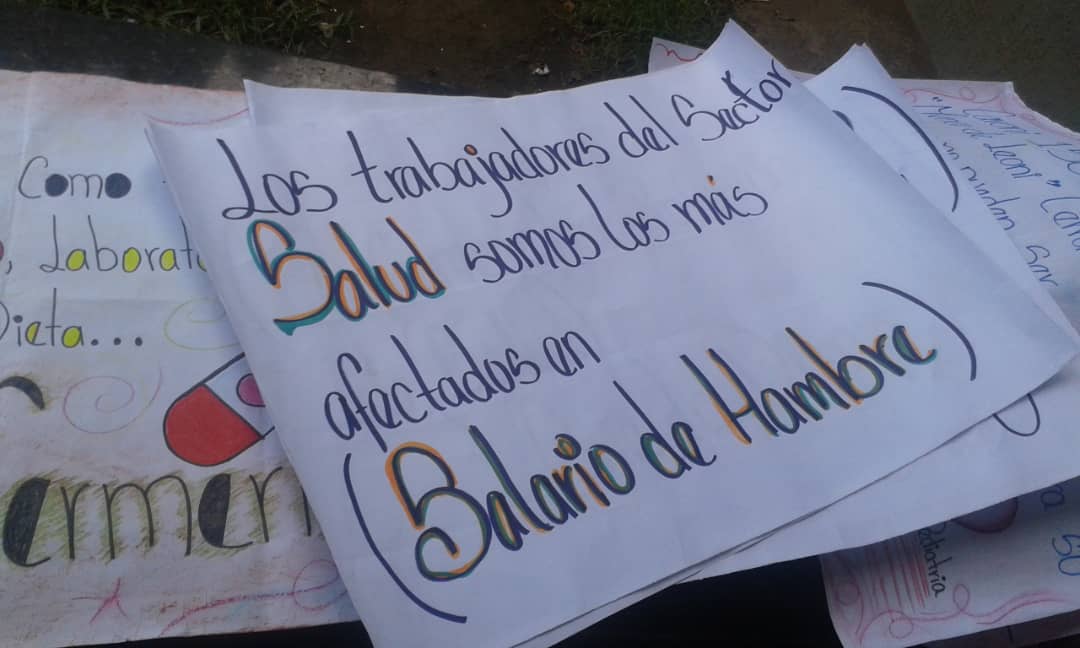 Los trabajadores del Sector
Salud somos los más
afectados en
(Salario de Hambre)
Como
Laborat
Dieta...
ermer
"Men de Leoni"
50
Pediatria